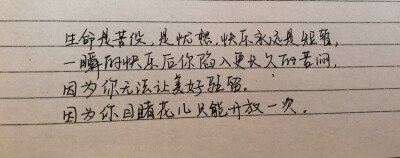 生命是苦役,是忧愁,快乐永远是短暂,
一瞬的快乐后你陷入更长久的苦闷,
因为你无法让美好驻留。
因为你目睹花儿只能开放一次。